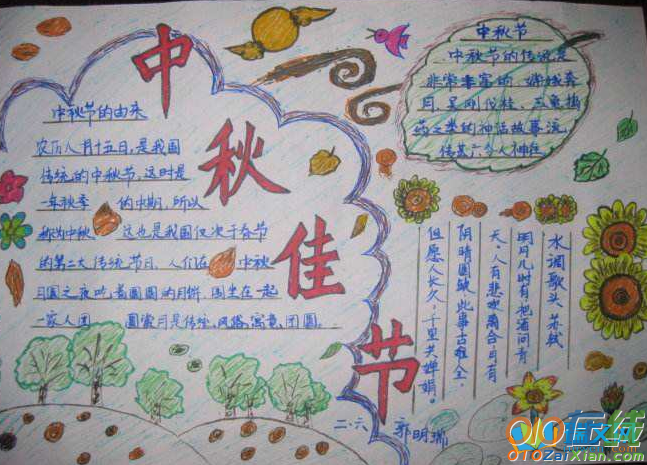 中秋佳节
中秋节的由来
农历八月十五日,是我国
传统的中秋节,这时是
一年秋季 的中期,所以
称为中秋 这也是我国仅次于春节
的第二大传统节日,人们在 中秋
月圆之夜吃着圆圆的月饼,围坐在一起
一家人团 圆赏月是传统风俗,寓意团圆。
中秋节
中秋节的传说是
非常丰富的,嫦娥奔
月,吴刚伐桂,玉兔捣
药之类的神话故事流
传甚广令人神往
水调歌头 苏轼
明月几时有把酒问青
天。人有悲欢离合月有
阴晴圆缺,此事古难全。
但愿人长久,千里共婵娟。
二.六 郭明瑞
010在线
010ZaiXian.com